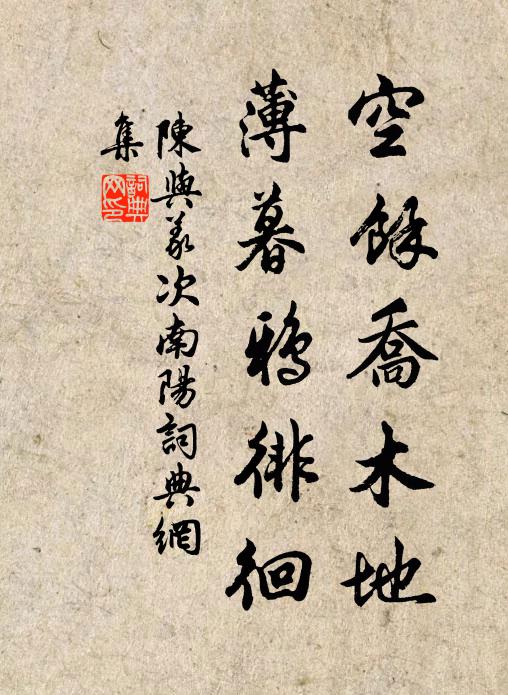 空餘喬木地
薄暮鴉徘徊
陳與義次南陽詞典網
集
詞典網印